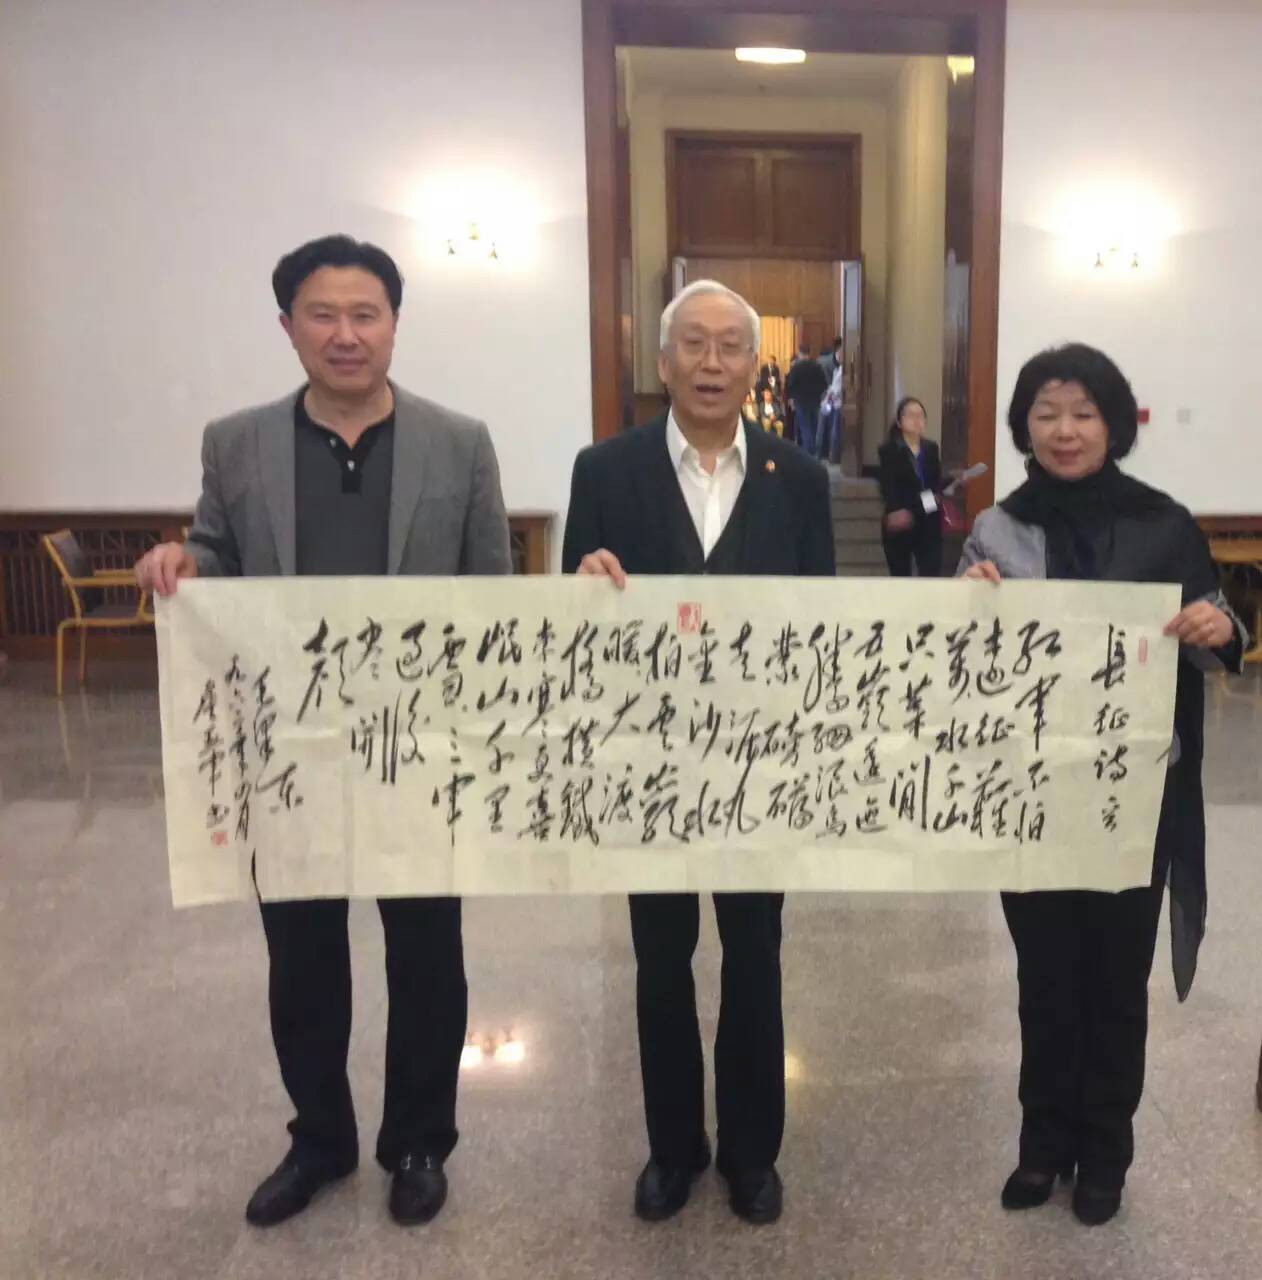 長征詩
紅軍不怕
遠征難
萬水千山
只等閒
五嶺逶迤
騰細浪烏
蒙磅礴
走泥丸
金沙水
拍雲巖
暖大渡
橋橫鐵
索寒更喜
岷山千里
雪三軍
過後
盡開
顏
毛澤東
年四月
書